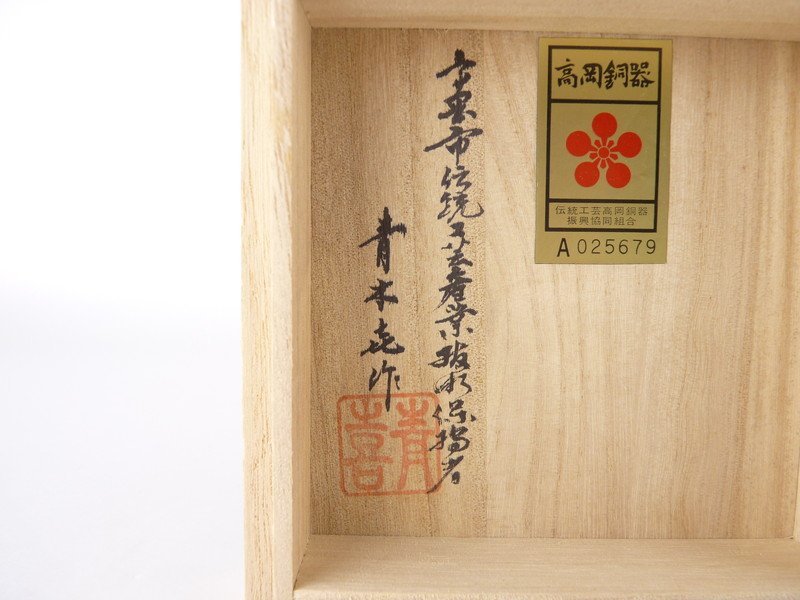 高岡銅器
伝統工芸高岡銅器
振興協同組合
A 025679
高岡市伝統工芸産業技術保持者
青木㐂作
青喜